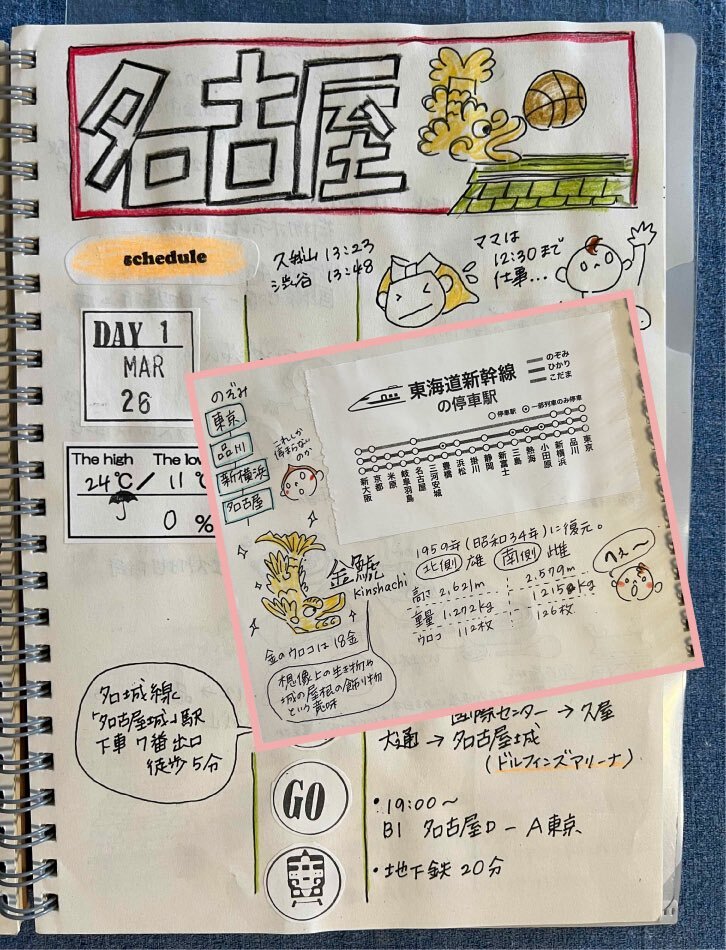 名古屋
schedule
久我山 13:23
渋谷 13:48
ママは
12:30まで
仕事...
DAY 1
MAR
26
The high
The low
24℃/ 11℃
0 %
名城線
「名古屋城」駅
下車 7番出口
徒歩5分
のぞみ
東京
品川
新横浜
名古屋
これしか
停まらない
のか
東海道新幹線
の停車駅
のぞみ
ひかり
こだま
停車駅
一部列車のみ停車
新大阪
京都
米原
岐阜羽島
名古屋
三河安城
豊橋
浜松
掛川
静岡
新富士
三島
熱海
小田原
新横浜
品川
東京
金鯱
Kinshachi
金のウロコは18金
想像上の生き物や
城の屋根の飾り物
という意味
1959年(昭和34年)に復元。
北側 雄 南側 雌
高さ 2.621m 2.579m
重量 1.272kg 1.215kg
ウロコ 112枚 126枚
へぇ〜
国際センター → 久屋
大通 → 名古屋城
(ドルフィンズアリーナ)
GO
・19:00〜
B1 名古屋D - A東京
・地下鉄 20分